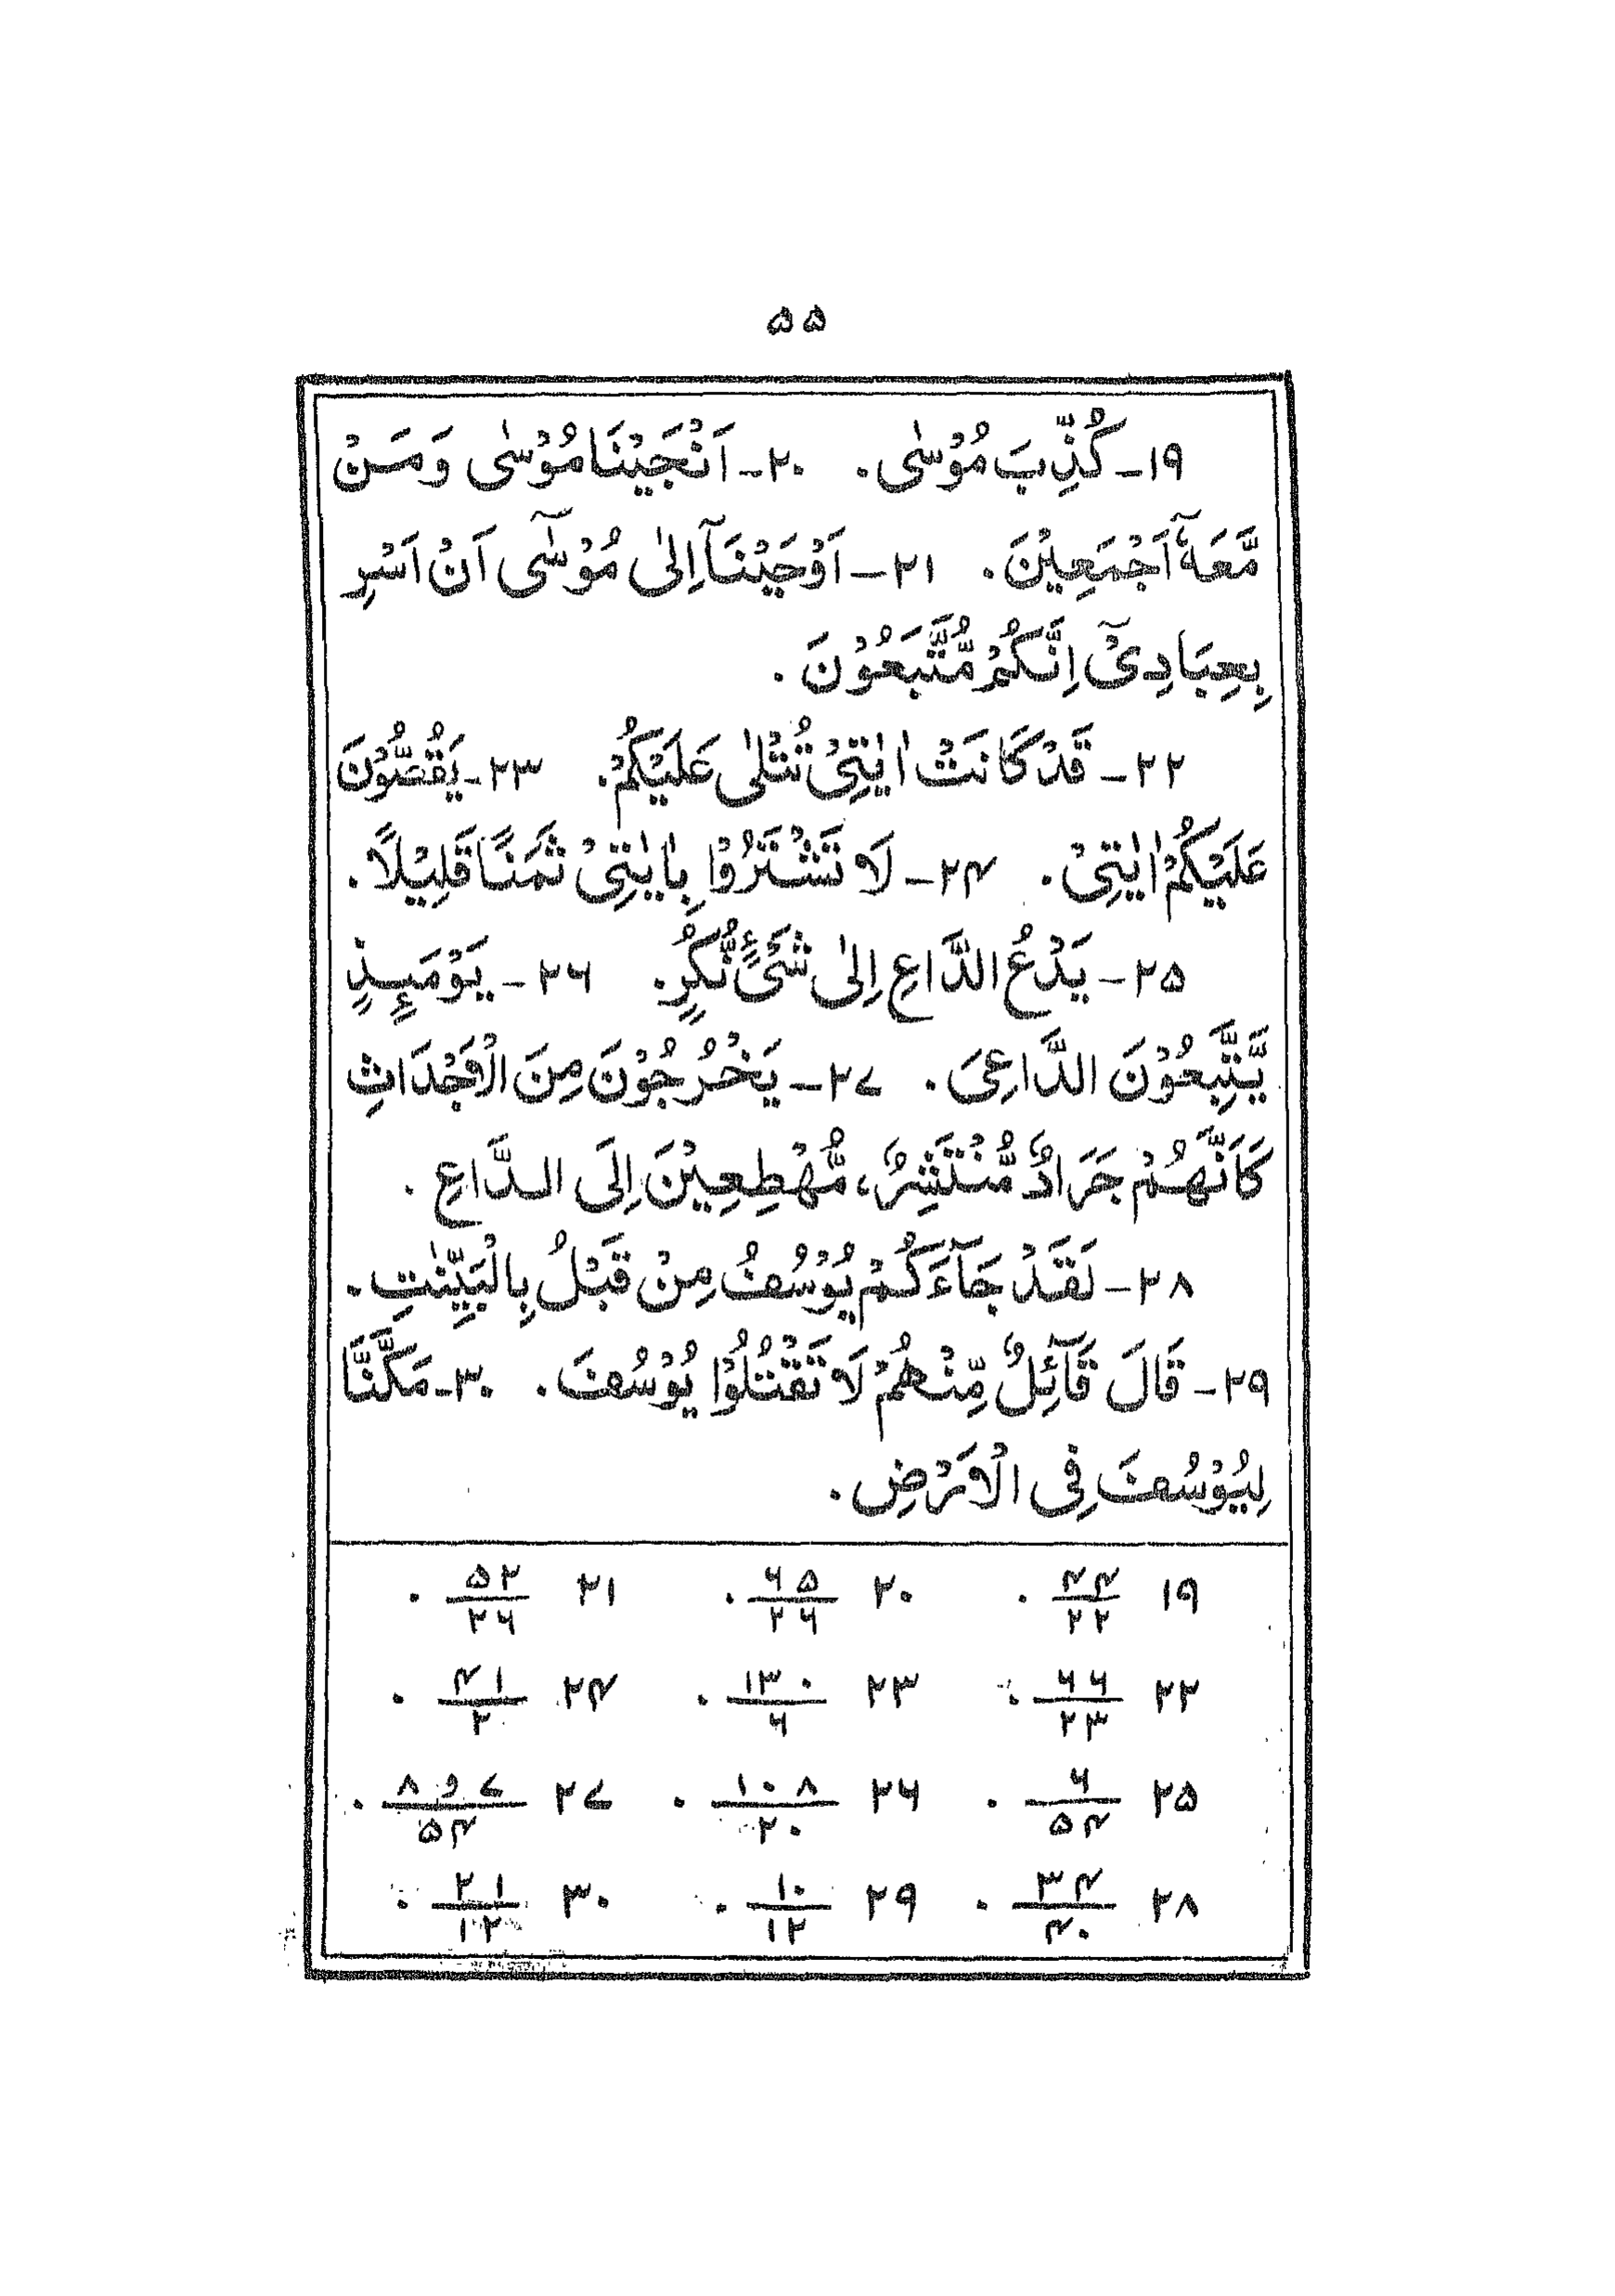 ۵۵
۱۹- كُذِّبَ مُوْسٰى. ۲۰- اَنْجَيْنَا مُوْسٰى وَمَنْ
مَّعَهٗٓ اَجْمَعِيْنَ. ۲۱- اَوْحَيْنَآ اِلٰى مُوْسٰٓى اَنْ اَسْرِ
بِعِبَادِىْٓ اِنَّكُمْ مُّتَّبَعُوْنَ.
۲۲- قَدْ كَانَتْ اٰيٰتِىْ تُتْلٰى عَلَيْكُمْ. ۲۳- يَقُصُّوْنَ
عَلَيْكُمْ اٰيٰتِىْ. ۲۴- لَا تَشْتَرُوْا بِاٰيٰتِىْ ثَمَنًا قَلِيْلًا.
۲۵- يَدْعُ الدَّاعِ اِلٰى شَىْءٍ نُّكُرٍ. ۲۶- يَوْمَىِٕذٍ
يَّتَّبِعُوْنَ الدَّاعِىَ. ۲۷- يَخْرُجُوْنَ مِنَ الْاَجْدَاثِ
كَاَنَّهُمْ جَرَادٌ مُّنْتَشِرٌ، مُّهْطِعِيْنَ اِلَى الدَّاعِ.
۲۸- لَقَدْ جَآءَكُمْ يُوْسُفُ مِنْ قَبْلُ بِالْبَيِّنٰتِ.
۲۹- قَالَ قَآئِلٌ مِّنْهُمْ لَا تَقْتُلُوْا يُوْسُفَ. ۳۰- مَكَّنَّا
لِيُوْسُفَ فِى الْاَرْضِ.
۱۹ ۴۴/۲۲. ۲۰ ۶۵/۲۶. ۲۱ ۵۲/۲۶.
۲۲ ۶۶/۲۳. ۲۳ ۱۳۰/۶. ۲۴ ۴۱/۲.
۲۵ ۶/۵۴. ۲۶ ۱۰۸/۲۰. ۲۷ ۷و۸/۵۴.
۲۸ ۳۴/۴۰. ۲۹ ۱۰/۱۲. ۳۰ ۲۱/۱۲.